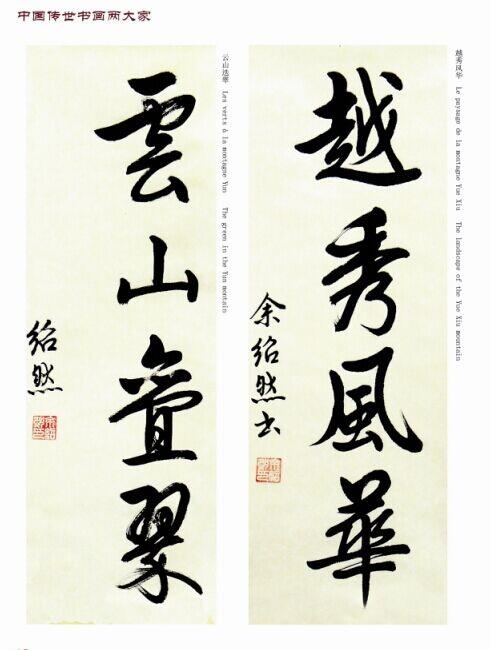 中国传世书画两大家
越秀风华 Le paysage de la montagne Yue Xiu The landscape of the Yue Xiu mountain
越秀風華
余绍然书
云山迭翠 Les verts à la montagne Yun The green in the Yun montain
雲山疊翠
绍然